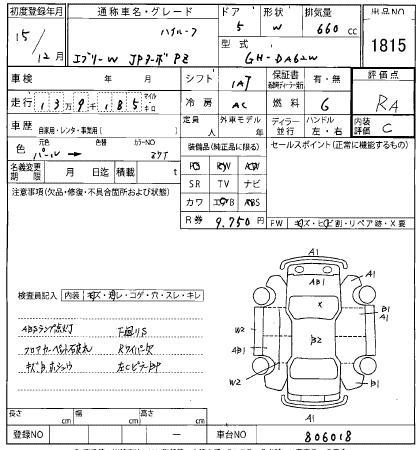 初度登録年月
15/12月
通称車名・グレード
ハイルーフ
エブリーW JPターボ PZ
ドア
5
形状
W
排気量
660 cc
型式
GH-DA62W
出品NO
1815
車検 年 月
シフト
IAT
保証書
有・無
評価点
RA
走行
139,185
マイル
キロ
冷房
AC
燃料
G
車歴
自家用・レンタ・事業用( )
定員
人
外車モデル
年
ディーラー
並行
ハンドル
左・右
内装
評価
C
色
元色
色替
カラーNO
パール
Z7T
装備品(純正品に限る)
セールスポイント(正常に機能するもの)
名義変更
期限
月 日迄
積載
t
PS PW AW
SR TV ナビ
カワ エアB ABS
注意事項(欠品・修復・不具合箇所および状態)
R券
9,750 円
FW
キズ・ヒビ割・リペア跡・X要
検査員記入
内装
キズ・汚レ・コゲ・穴・スレ・キレ
ABSランプ点灯
下廻りS
フロアカーペット
RワイパーX
左Cピラー
A1
AB1
A1
X
B1
A1
W2
B2
AB1
W2
A1
B1
A1
長さ
cm
幅
cm
高さ
cm
登録NO
ー
車台NO
806018